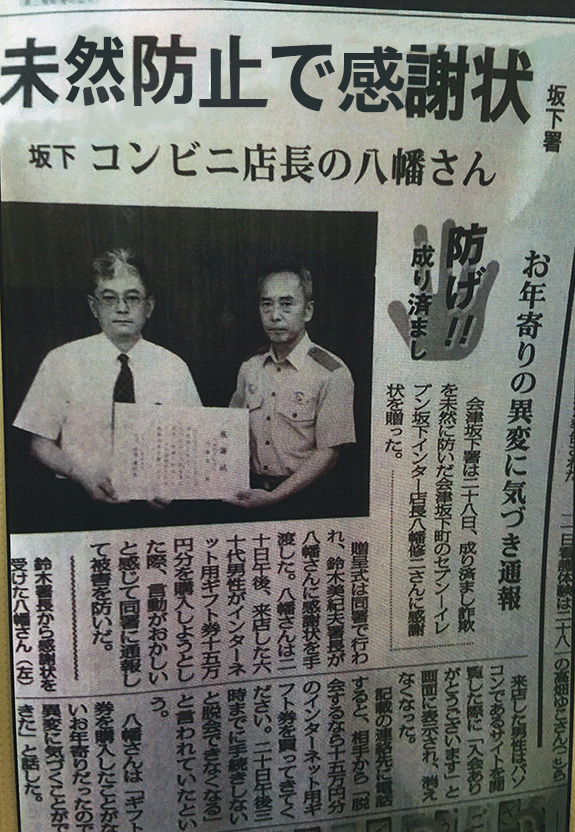 未然防止で感謝状
坂下署
坂下 コンビニ店長の八幡さん
お年寄りの異変に気づき通報
防げ!!
成り済まし
会津坂下署は二十八日、成り済まし詐欺
を未然に防いだ会津坂下町のセブン―イレ
ブン坂下インター店長八幡修二さんに感謝
状を贈った。
贈呈式は同署で行わ
れ、鈴木美紀夫署長が
八幡さんに感謝状を手
渡した。八幡さんは二
十日午後、来店した六
十代男性がインターネ
ット用ギフト券十五万
円分を購入しようとし
た際、言動がおかしい
と感じて同署に通報し
て被害を防いだ。
鈴木署長から感謝状を
受けた八幡さん(左)
来店した男性はパソ
コンであるサイトを閲
覧した際に「入会あり
がとうございます」と
画面に表示され、消え
なくなった。
記載の連絡先に電話
すると、相手から「脱
会するなら十五万円分
のインターネット用ギ
フト券を買ってきてく
ださい。二十日午後三
時までに手続きしない
と脱会できなくなる」
と言われていたとい
う。
八幡さんは「ギフト
券を購入したことがな
いお年寄りだったので
異変に気づくことがで
きた」と話した。